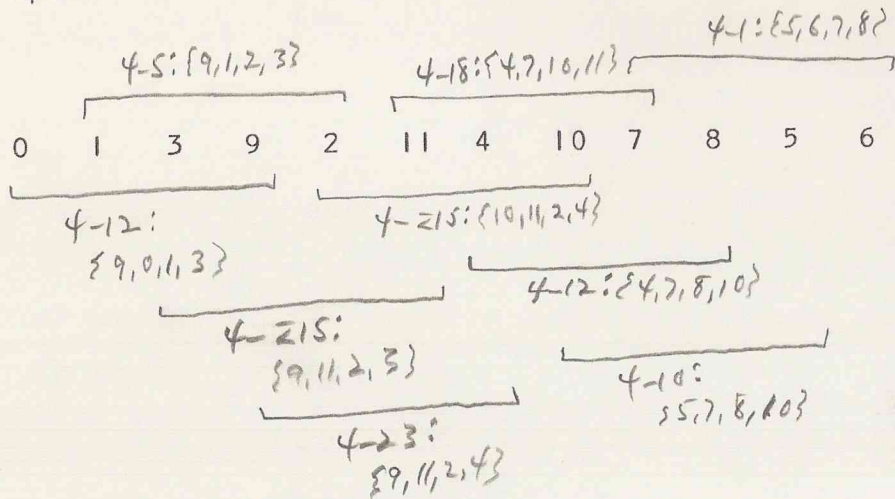 4-1:{5,6,7,8}
4-5:{9,1,2,3}
4-18:{4,7,10,11}
0 1 3 9 2 11 4 10 7 8 5 6
4-12:
{9,0,1,3}
4-Z15:{10,11,2,4}
4-12:{4,7,8,10}
4-Z15:
{9,11,2,3}
4-10:
{5,7,8,10}
4-23:
{9,11,2,4}